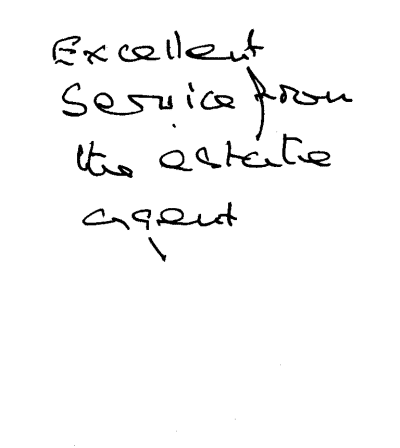 Excellent
Service from
the estate
agent